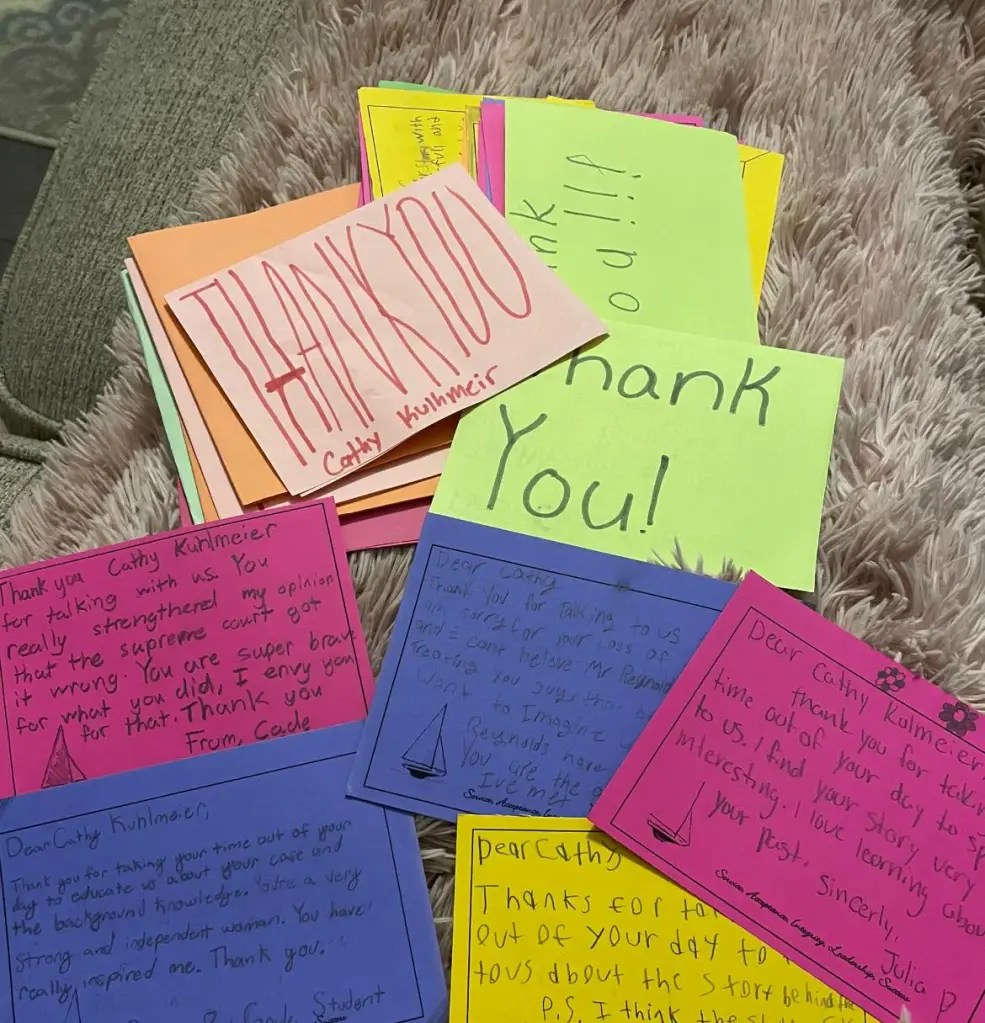 with
full and
THANK YOU
Cathy Kulhmeir
ank
ou!!!
hank
You!
Thank you Cathy Kuhlmeier
for talking with us. You
really strengthered my opinion
that the supreme court got
it wrong. You are super brave
for what you did, I envy you
for that. Thank you
From, Cade
Dear Cathy
Thank You for Talking to us
am sorry for your Loss of
and I cant beleve Mr Reynolds
Treating you guys that
Want to Imagine
Reynolds have
You are the
Ive met
Service Acceptance
Dear Cathy Kulmeier,
thank you for takin
time out of your day to sp
to us. I find your story very
interesting. I love learning abou
your past.
Sincerly,
Julia P
Service Acceptance Integrity Leadership Success
Dear Cathy Kuhlmeier,
Thank you for taking your time out of your
day to educate us about your case and
the background knowledge. You're a very
strong and independent woman. You have
really inspired me. Thank you.
Grade Student
Success
Dear Cathy
Thanks for ta
out of your day to
to us about the story behind the
P.S. I think the